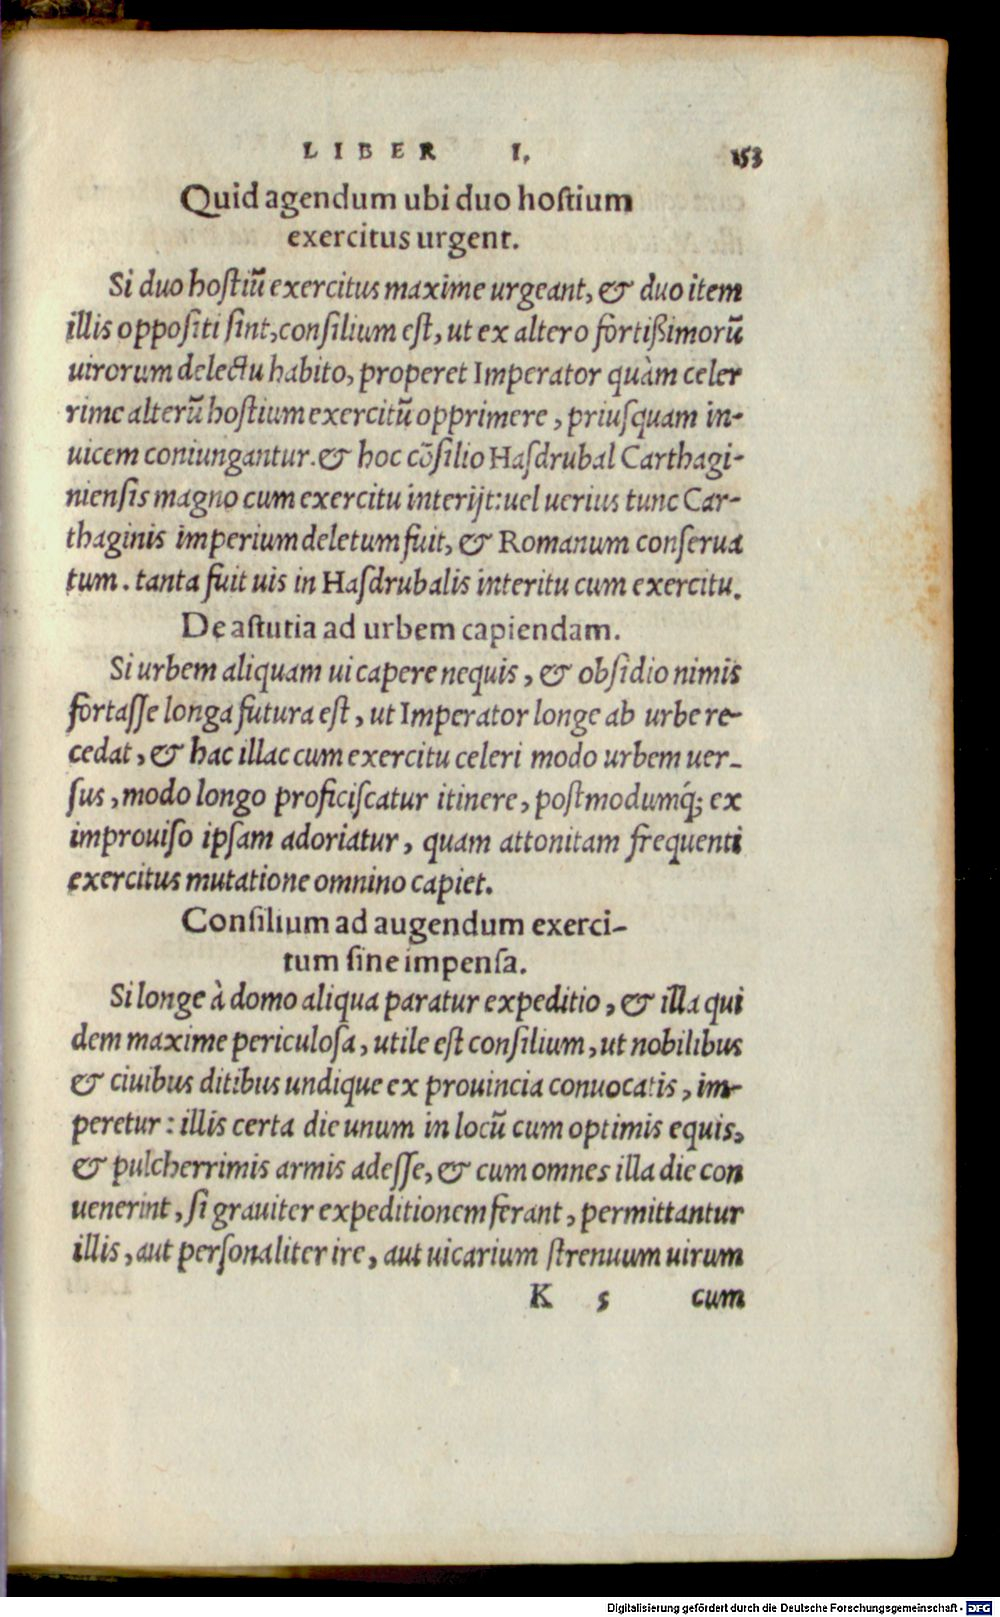 LIBER I. 153
Quid agendum ubi duo hoſtium
exercitus urgent.
Si duo hoſtiũ exercitus maxime urgeant, & duo item
illis oppoſiti ſint, conſilium eſt, ut ex altero fortißimorũ
uirorum delectu habito, properet Imperator quàm celer
rime alterũ hoſtium exercitũ opprimere, priuſquam in-
uicem coniungantur. & hoc cõſilio Haſdrubal Carthagi-
nienſis magno cum exercitu interijt: uel uerius tunc Car-
thaginis imperium deletum fuit, & Romanum conſerua
tum. tanta fuit uis in Haſdrubalis interitu cum exercitu.
De aſtutia ad urbem capiendam.
Si urbem aliquam ui capere nequis, & obſidio nimis
fortaſſe longa futura eſt, ut Imperator longe ab urbe re-
cedat, & hac illac cum exercitu celeri modo urbem uer-
ſus, modo longo proficiſcatur itinere, poſtmodumq́; ex
improuiſo ipſam adoriatur, quam attonitam frequenti
exercitus mutatione omnino capiet.
Conſilium ad augendum exerci-
tum ſine impenſa.
Si longe à domo aliqua paratur expeditio, & illa qui
dem maxime periculoſa, utile eſt conſilium, ut nobilibus
& ciuibus ditibus undique ex prouincia conuocatis, im-
peretur: illis certa die unum in locũ cum optimis equis,
& pulcherrimis armis adeſſe, & cum omnes illa die con
uenerint, ſi grauiter expeditionem ferant, permittantur
illis, aut perſonaliter ire, aut uicarium ſtrenuum uirum
K 5 cum
Digitalisierung gefördert durch die Deutsche Forschungsgemeinschaft - DFG